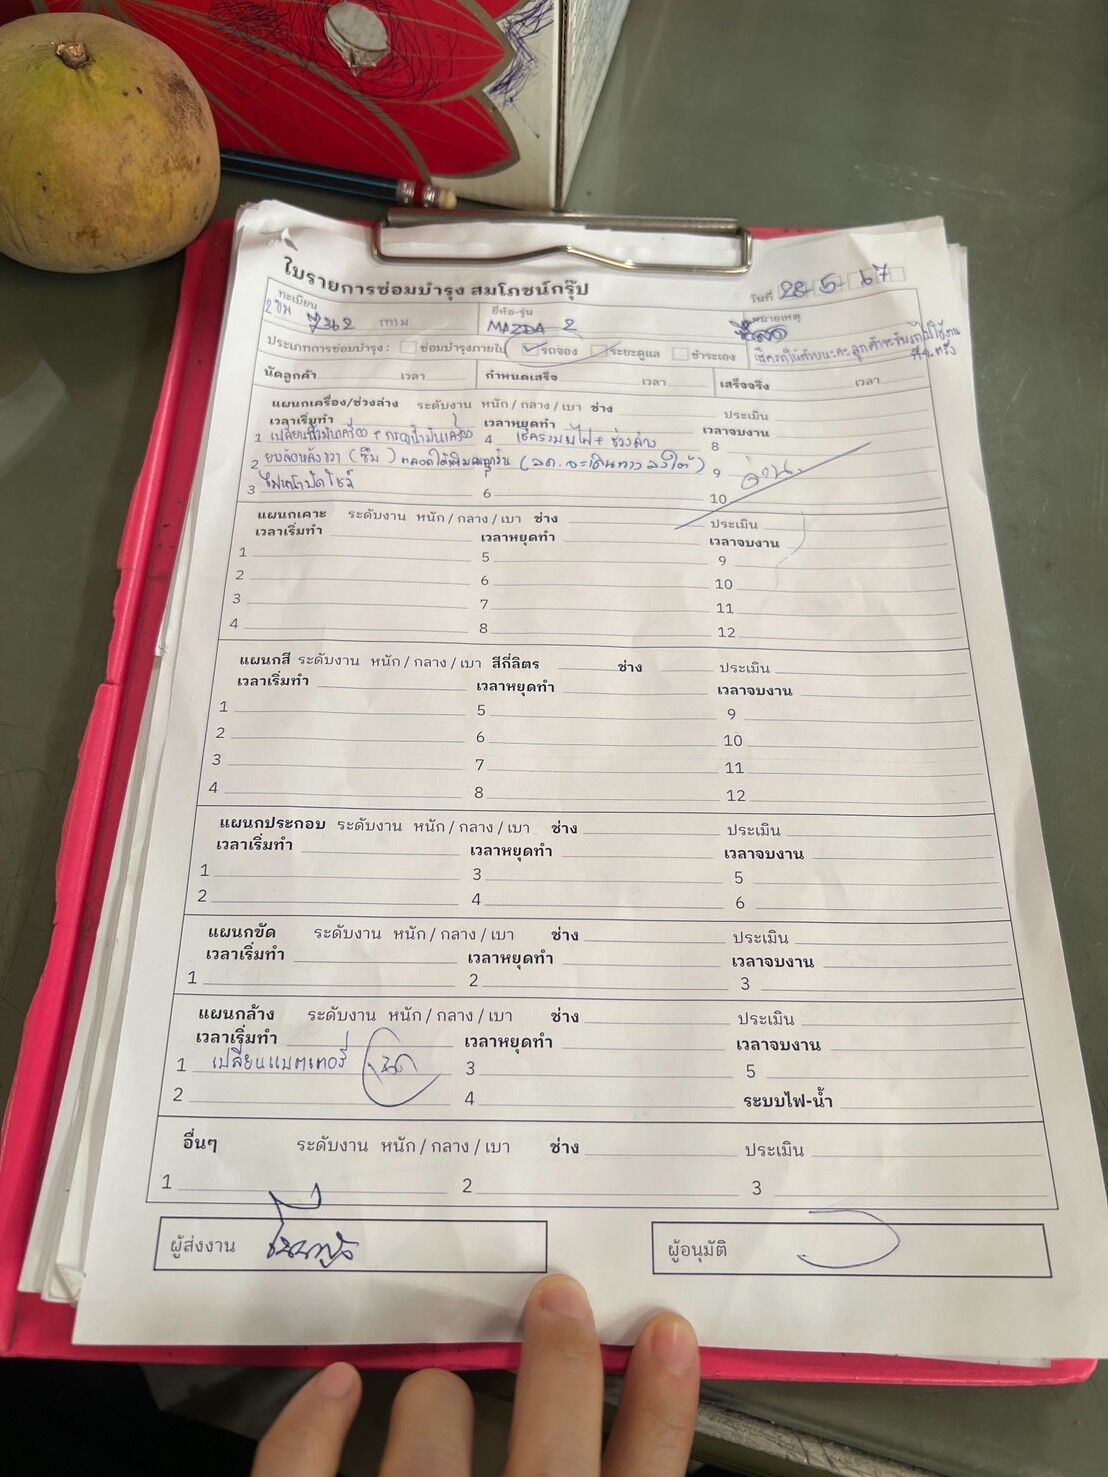 ใบรายการซ่อมบำรุง สมโภชน์กรุ๊ป
วันที่ 28 5 67
ทะเบียน
กทม
ยี่ห้อ-รุ่น
MAZDA 2
หมายเหตุ
ประเภทการซ่อมบำรุง : ซ่อมบำรุงภายใน รถจอง ระยะดูแล ชำระเอง
นัดลูกค้า เวลา กำหนดเสร็จ เวลา เสร็จจริง เวลา
แผนกเครื่อง/ช่วงล่าง ระดับงาน หนัก / กลาง / เบา ช่าง ประเมิน
เวลาเริ่มทำ เวลาหยุดทำ เวลาจบงาน
1 เปลี่ยนน้ำมันเครื่อง + กรองน้ำมันเครื่อง 4 เช็คระบบไฟ + ช่วงล่าง 8
2 ยางล้อหลังขวา (ซึม) (ลค. จะเดินทางลงใต้) 9
3 ไฟหน้าปัดโชว์ 6 10
แผนกเคาะ ระดับงาน หนัก / กลาง / เบา ช่าง ประเมิน
เวลาเริ่มทำ เวลาหยุดทำ เวลาจบงาน
1 5 9
2 6 10
3 7 11
4 8 12
แผนกสี ระดับงาน หนัก / กลาง / เบา สีกี่ลิตร ช่าง ประเมิน
เวลาเริ่มทำ เวลาหยุดทำ เวลาจบงาน
1 5 9
2 6 10
3 7 11
4 8 12
แผนกประกอบ ระดับงาน หนัก / กลาง / เบา ช่าง ประเมิน
เวลาเริ่มทำ เวลาหยุดทำ เวลาจบงาน
1 3 5
2 4 6
แผนกขัด ระดับงาน หนัก / กลาง / เบา ช่าง ประเมิน
เวลาเริ่มทำ เวลาหยุดทำ เวลาจบงาน
1 2 3
แผนกล้าง ระดับงาน หนัก / กลาง / เบา ช่าง ประเมิน
เวลาเริ่มทำ เวลาหยุดทำ เวลาจบงาน
1 เปลี่ยนแบตเตอรี่ 3 5
2 4 ระบบไฟ-น้ำ
อื่นๆ ระดับงาน หนัก / กลาง / เบา ช่าง ประเมิน
1 2 3
ผู้ส่งงาน
ผู้อนุมัติ